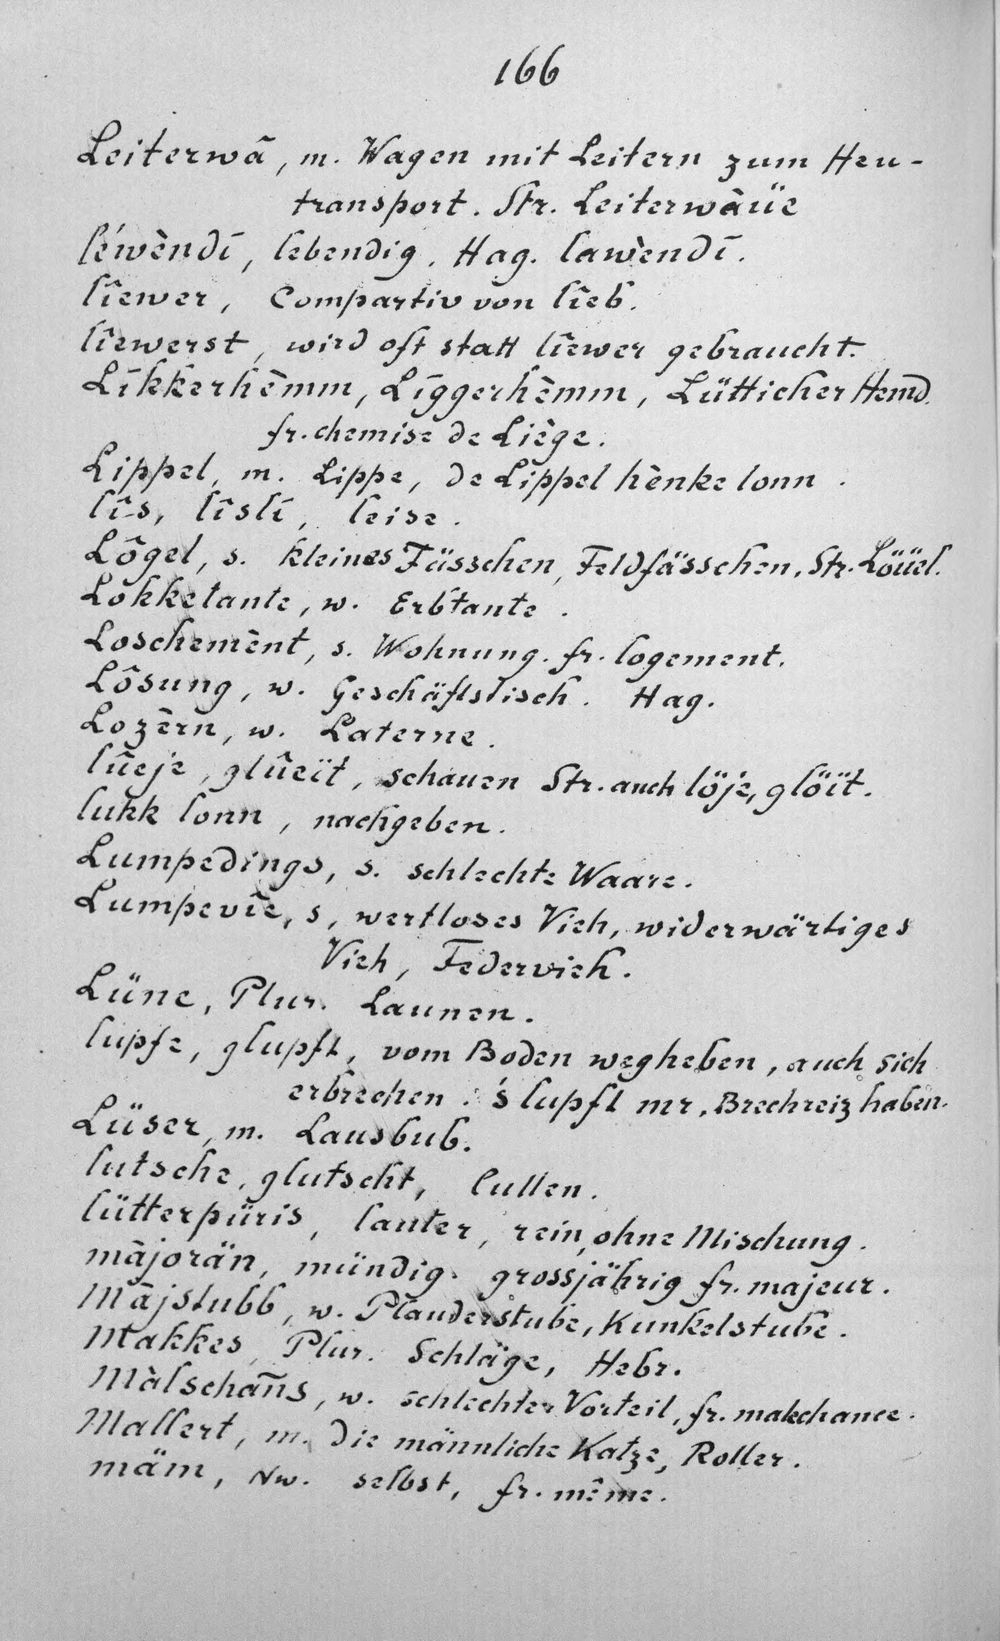 166
Leiterwâ, m. Wagen mit Leitern zum Heu-
transport. Str. Leiterwàüe
léwèndī, lebendig. Hag. lawèndī.
lîewer, Compartiv von lîeb.
lîewerst, wird oft statt lîewer gebraucht.
Līkkerhèmm, Līggerhèmm, Lütticher Hemd.
fr. chemise de Liège.
Lippel, m. Lippe, de Lippel hènke lonn.
lîs, lîslī, leise.
Lôgel, s. kleines Fässchen, Feldfässchen. Str. Löüel.
Lokketante, w. Erbtante.
Loschemènt, s. Wohnung. fr. logement.
Lôsung, w. Geschäftstisch. Hag.
Lozèrn, w. Laterne.
lûeje, glûeït, schauen Str. auch löje, glöït.
lukk lonn, nachgeben.
Lumpedings, s. schlechte Waare.
Lumpevîe, s, wertloses Vieh, widerwärtiges
Vieh, Federvieh.
Lüne, Plur. Launen.
lupfe, glupft, vom Boden wegheben, auch sich
erbrechen. 's lupft mr, Brechreiz haben.
Lüser, m. Lausbub.
lutsche, glutscht, lullen.
lütterpüris, lauter, rein, ohne Mischung.
màjorän, mündig. grossjährig fr. majeur.
Màjstubb, w. Plauderstube, Kunkelstube.
Makkes, Plur. Schläge, Hebr.
Màlschàñs, w. schlechter Vorteil, fr. malechance.
Mallert, m. Die männliche Katze, Roller.
mäm, Nw. selbst, fr. même.